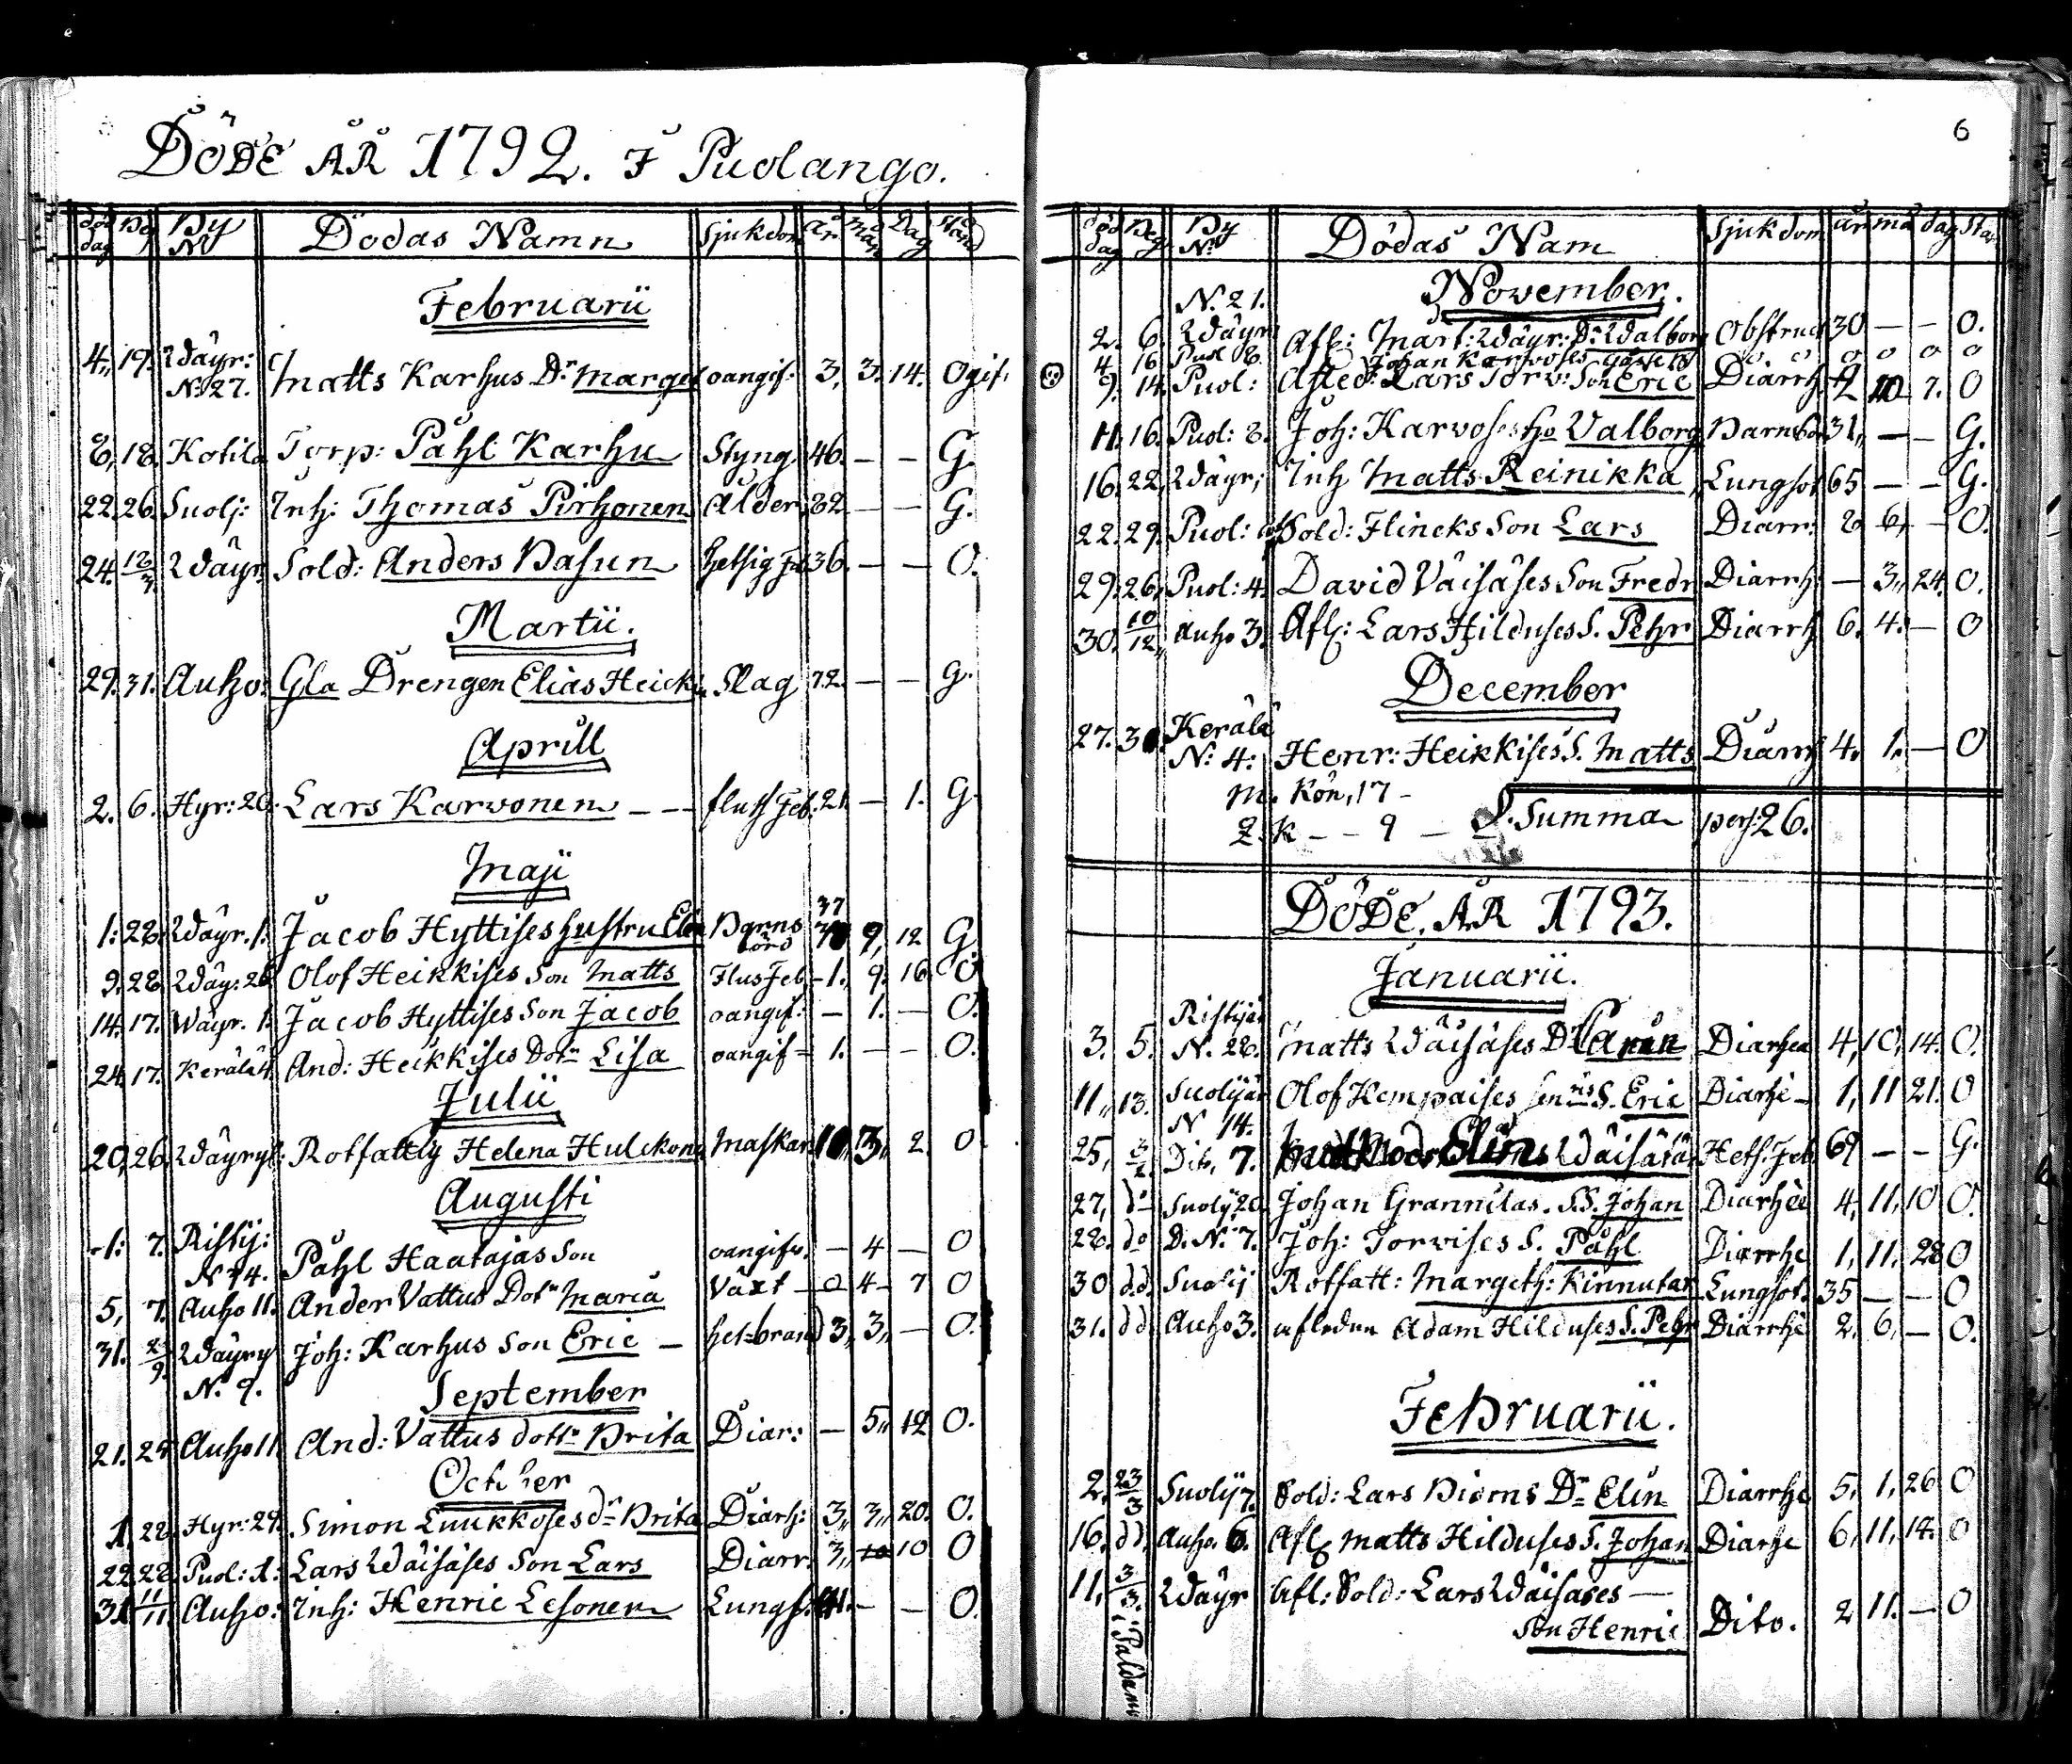 DÖDE ÅR 1792. I Puolango.
död dag Beg By No Dödas Namn Sjukdom År Mån Dag Stånd
Februarii
4,, 19. Wäyr: N:27. Matts Karhus Dr Marget oangif: 3, 3. 14. Ogif:
8, 18. Kotila Torp: Påhl Karhu Styng 46. — — G
22. 26. Suolj: Inh: Thomas Pirhonen Ålder: 82 — — G.
24. 12/3. Wäyr. Sold: Anders Basun hetsig Feb 36. — — O.
Martii.
29. 31. Auho: Gla Drengen Elias Heicki Slag 72. — — G.
Aprill
2. 6. Hyr: 20. Lars Karvonen — — fluss Feb. 21. — 1. G.
Maji
37
1: 28. Wäyr. 1. Jacob Hyttises hustru Elin Barns börd 9, 12 G
9. 28. Wäy: 26 Olof Heikkises Son Matts Flus Feb - 1. 9. 16. O
14. 17. Wäyr. 1. Jacob Hyttises Son Jacob oangif: — 1. — O.
24. 17. Kerälä 4. And: Heikkises Dotr Lisa oangif = 1. — — O.
Julii
20, 26. Wäyryl: Rotfattig Helena Hulckone Maskar 10,, 3,, 2. O.
Augusti
1: 7. Ristij: N 14. Påhl Haatajas Son oangifv. — 4 — O
5, 7. Auho 11. Ander Vattus Dotr Maria Växt — 0 4 — 7 O
31. 2/9. Wäyry N. 9. Joh: Karhus Son Eric — het=brand 3,, 3,, — O.
September
21. 29 Auho 11 And: Vattus dottr Brita Diar: — 5,, 12 O.
October
1. 28. Hyr: 29. Simon Luukkoses dr Brita Diarh: 3,, 3,, 20. O.
22. 28. Puol: 1: Lars Wäisäses Son Lars Diarr. 3,, 10 10 O
31. 11/11. Auho: Inh: Henric Lesonen Lungs. — — O.
6
död dag Beg By No Dödas Nam Sjukdom år må dag Stå
November.
2. 6. N. 21. Wäyr Afl: Mart: Wäyr: Dr Walborg Obstruct 30 — — O.
4 16 Puol 8. Johan Karvoses o o o o
9. 14. Puol: Afled: Lars Torv: Son Eric Diarrh. 10 7. O
11. 16. Puol: 8. Joh: Karvoses ho Valborg Barnbö 31,, — — G.
16. 22. Wäyr; Inh Matts Reinikka Lungsot 65 — — G.
22. 29. Puol: Sold: Flincks Son Lars Diarr: 8 6, — O.
29. 26. Puol: 4. David Väisäses Son Fredr Diarrh: — 3,, 24. O.
30. 10/12,, Auho 3. Afl: Lars Hilduses S. Pehr Diarrh 6. 4. — O
December
27. 30. Kerälä N: 4: Henr: Heikkises S. Matts Diarrh 4. 1. — O
M. Kön, 17 —
Q. K — — 9 — S. Summa pers: 26.
DÖDE, ÅR 1793.
Januarii.
3. 5. Ristijär N. 28. Matts Wäisäses Dr Caren Diarhea 4, 10, 14. O.
11,, 13. Suolijär N 14. Olof Kempaises S. Eric Diarhe — 1, 11 21. O
25, 3/2. Dito, 7. Elin Wäisätä Hets. Feb. 69 — — G.
27, do Suolij 20. Johan Grannilas. S.S. Johan Diarhée 4, 11, 10 O.
28. do D. N. 7. Joh: Torvises S. Påhl Diarrhe 1, 11, 28 O
30 dd. Suolij Rotfatt: Margeth: Kinnutar Lungsot. 35 — — O
31. dd Auho 3. afledne Adam Hilduses S. Pehr Diarrhe 2. 6, — O.
Februarii.
2. 23/3 Suolij 7. Sold: Lars Biörns Dr Elin Diarrhe 5, 1, 26 O
16. dd, Auho. 6. Afl: Matts Hilduses S. Johan Diarhe 6, 11, 14. O
11, 3/3. Wäyr Afl: Sold: Lars Wäisäses —
Son Henric Dito. 2 11. — O
i Paldamo